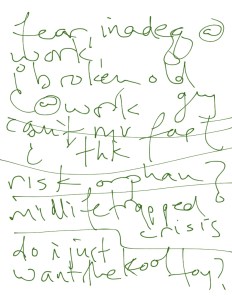 fear inadeq @
work
i broken old
@work guy
can't mv fast
& thk
risk orphan?
midlife trapped
crisis
do i just
want the kool
toy?